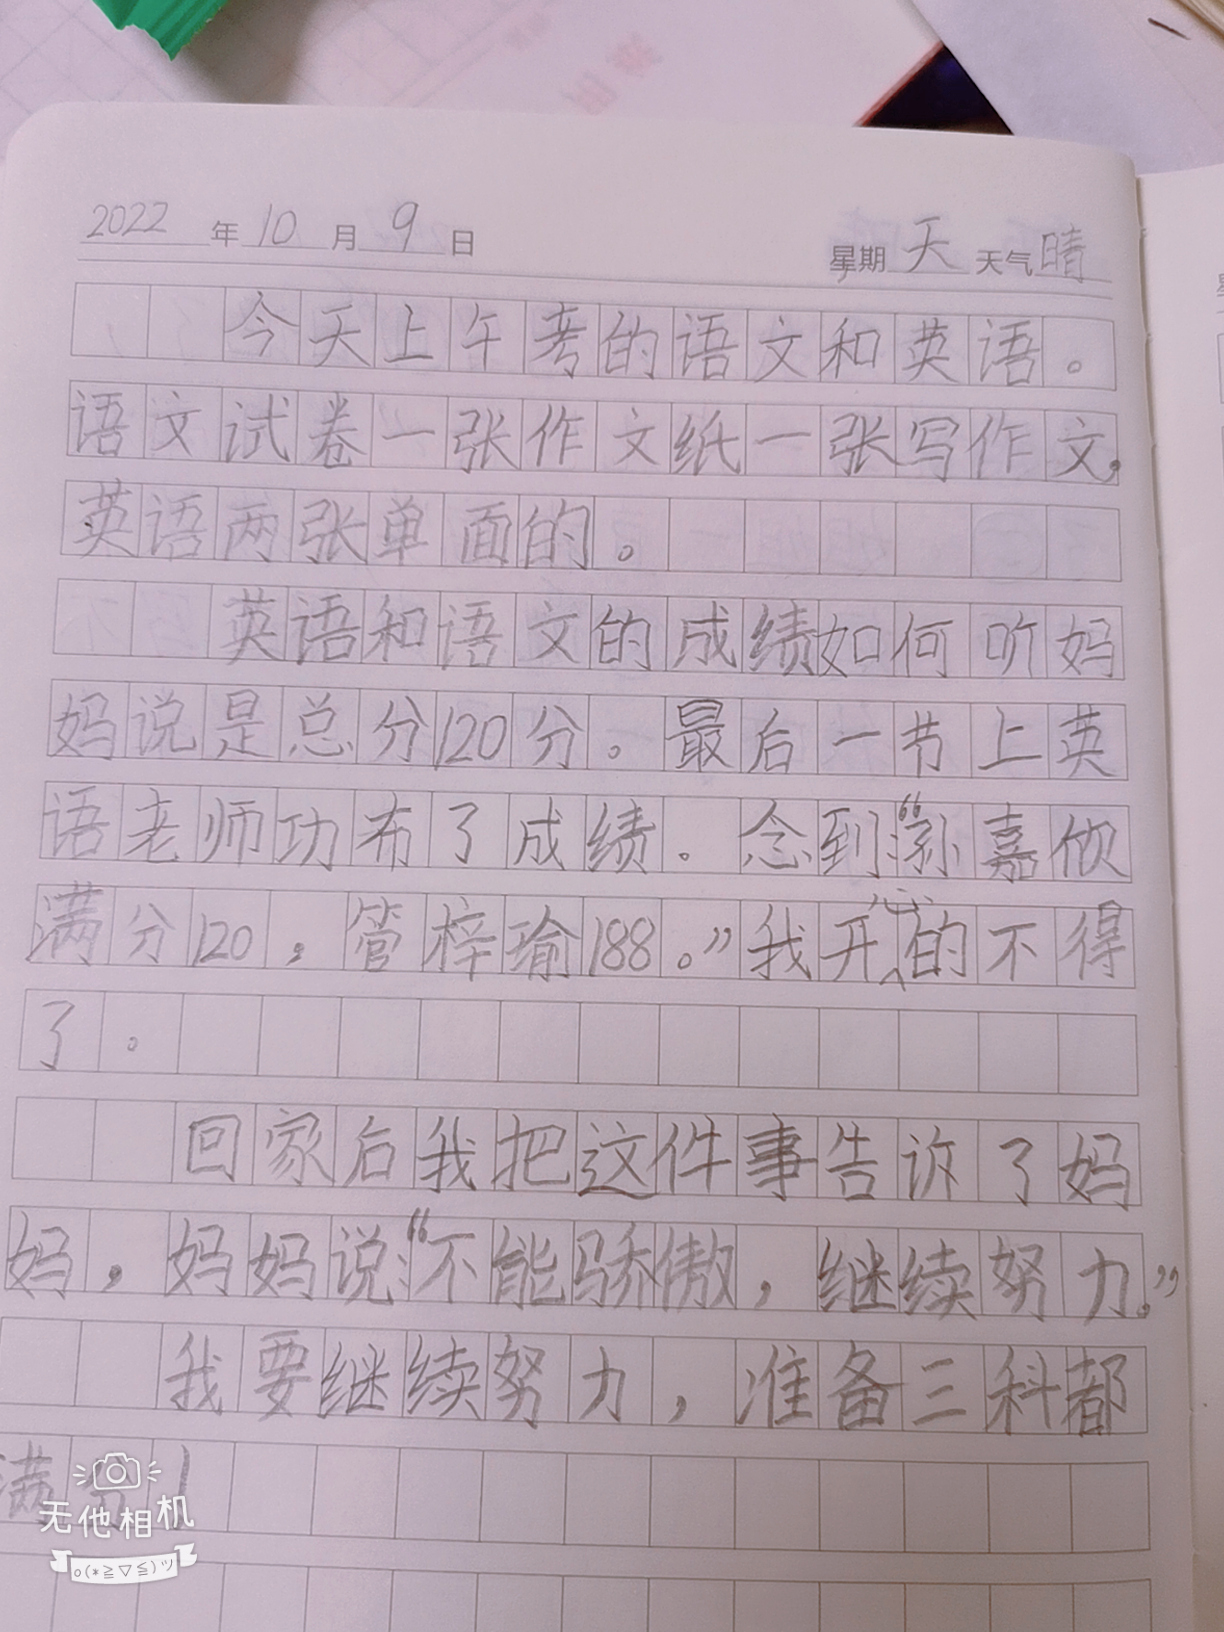 2022年10月9日 星期天 天气晴
今天上午考的语文和英语。
语文试卷一张作文纸一张写作文,
英语两张单面的。
英语和语文的成绩如何听妈
妈说是总分120分。最后一节上英
语老师功布了成绩。念到:“孙嘉依
满分120,管梓瑜188。”我开心的不得
了。
回家后我把这件事告诉了妈
妈,妈妈说:“不能骄傲,继续努力。”
我要继续努力,准备三科都
满分!
无他相机
o(*≧▽≦)ツ